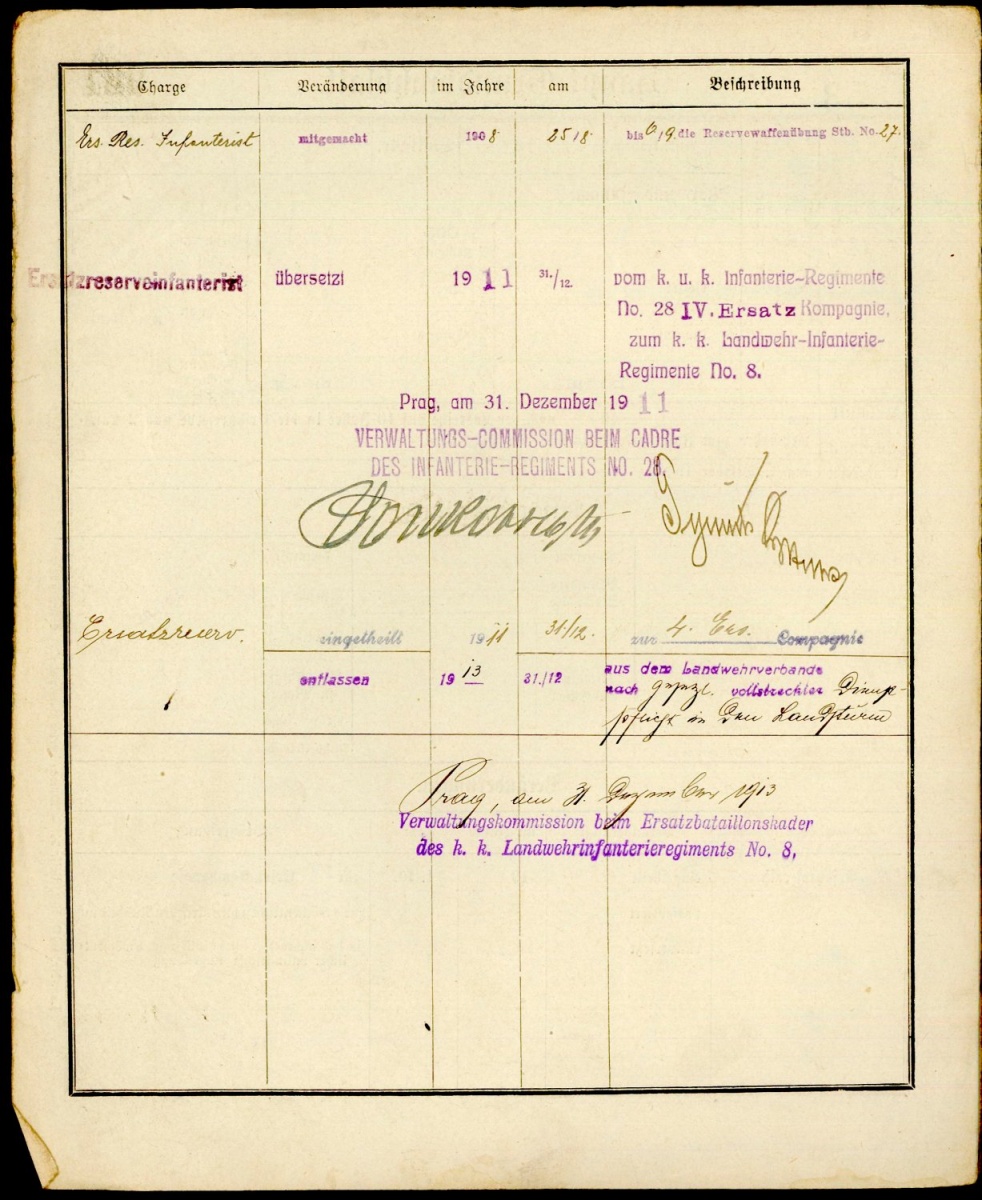 Charge Veränderung im Jahre am Beschreibung
Ers. Res. Infanterist mitgemacht 1908 25/8 bis 6/9. die Reservewaffenübung Stb. No. 27.
Ersatzreserveinfanterist übersetzt 1911 31./12. vom k. u. k. Infanterie-Regimente
No. 28 IV. Ersatz Kompagnie,
zum k. k. Landwehr-Infanterie-
Regimente No. 8.
Prag, am 31. Dezember 1911
VERWALTUNGS-COMMISSION BEIM CADRE
DES INFANTERIE-REGIMENTS NO. 28.
Ersatzreserv. eingetheilt 1911 31./12. zur 4. Ers. Compagnie
entlassen 1913 31./12 aus dem Landwehrverbande
nach gesezl. vollstreckter Dienst-
pflicht in den Landsturm
Prag, am 31. Dezember 1913
Verwaltungskommission beim Ersatzbataillonskader
des k. k. Landwehrinfanterieregiments No. 8,